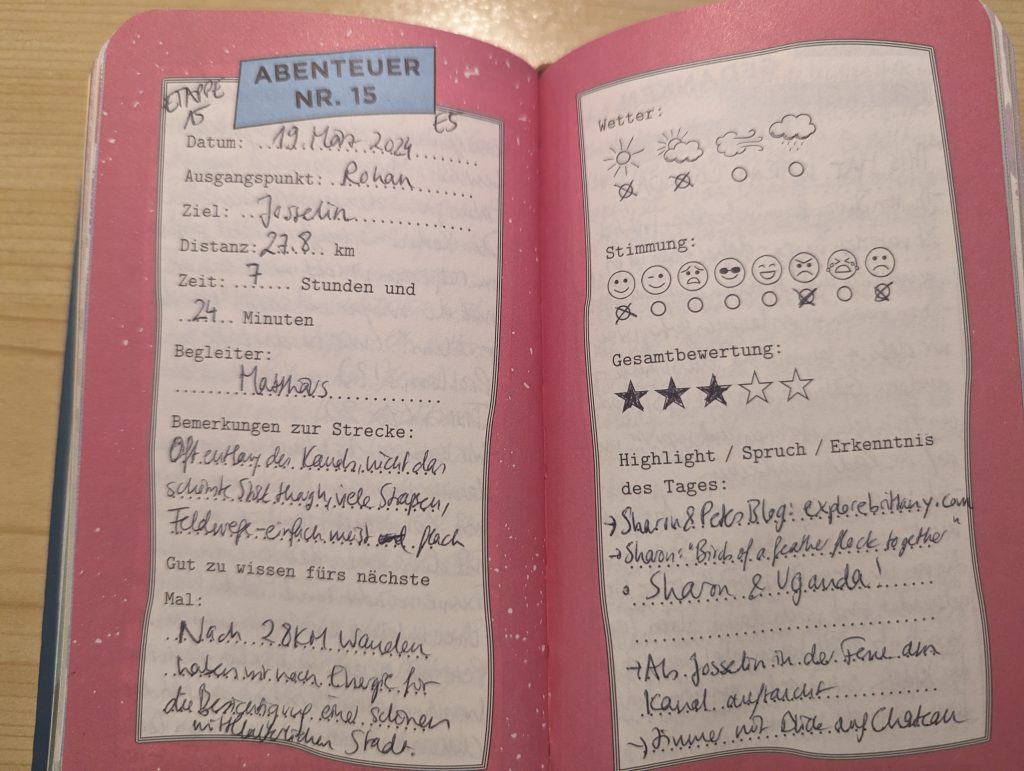 ABENTEUER
NR. 15
ETAPPE
15
E5
Datum: 19. März 2024
Ausgangspunkt: Rohan
Ziel: Josselin
Distanz: 27.8 km
Zeit: 7 Stunden und
24 Minuten
Begleiter:
Matthias
Bemerkungen zur Strecke:
Oft entlang des Kanals, nicht das
schönste Stück though, viele Strassen,
Feldwege - einfach meist flach
Gut zu wissen fürs nächste
Mal:
Nach 28KM Wandern
haben wir noch Energie für
die Besichtigung einer schönen
mittelalterlichen Stadt.
Wetter:
Stimmung:
Gesamtbewertung:
Highlight / Spruch / Erkenntnis
des Tages:
→ Sharon & Pet Blog: explorebrittany.com
→ Sharon: "Birds of a feather flock together"
• Sharon & Uganda!
→ Als Josselin in der Ferne am
Kanal auftaucht
→ Zimmer mit Blick auf Chateau